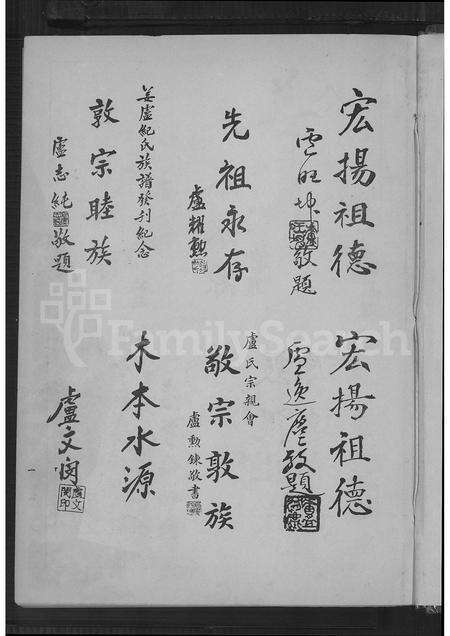 宏揚祖德
盧旺坤敬題
先祖永存
盧耀勲
姜盧紀氏族譜發刊紀念
敦宗睦族
盧志純敬題
宏揚祖德
盧逸塵敬題
盧氏宗親會
敬宗敦族
盧勲錬敬書
木本水源
盧文閔
盧文閔印
FamilySearch